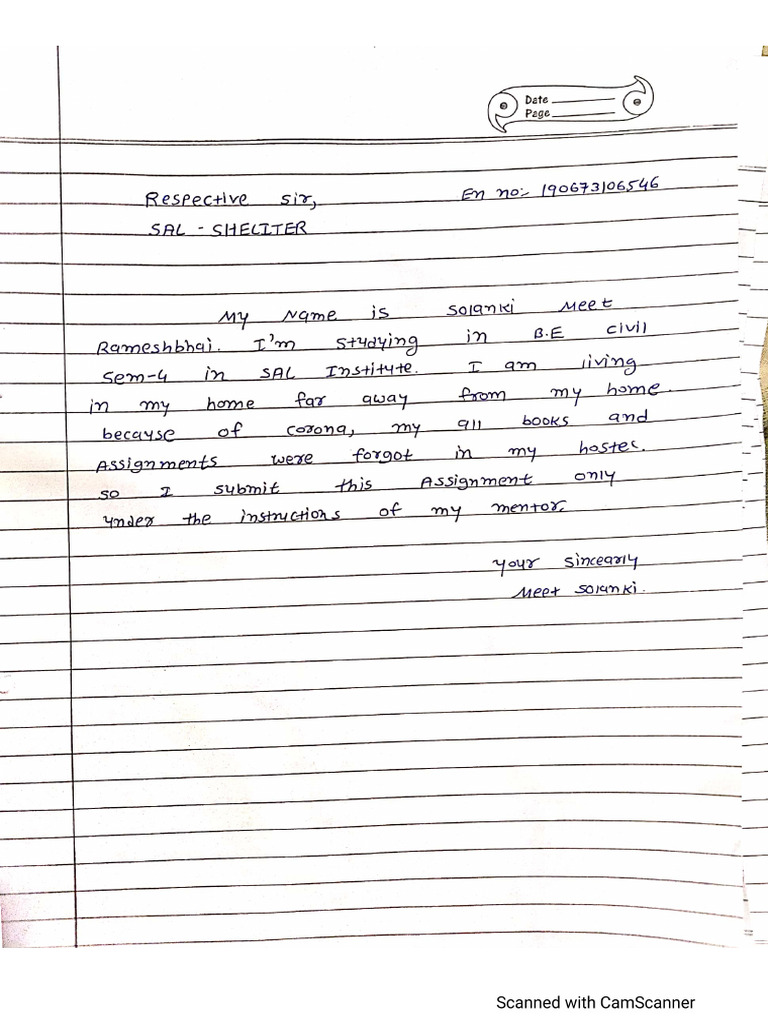 Date
Page
Respective sir,
En no:- 190673106546
SAL - SHELITER
My Name is Solanki Meet
Rameshbhai. I'm studying in B.E civil
Sem-4 in SAL Institute. I am living
in my home far away from my home
because of corona, my all books and
Assignments were forgot in my hostel.
so I submit this Assignment only
under the instructions of my mentor.
your sincearly
Meet Solanki.
Scanned with CamScanner